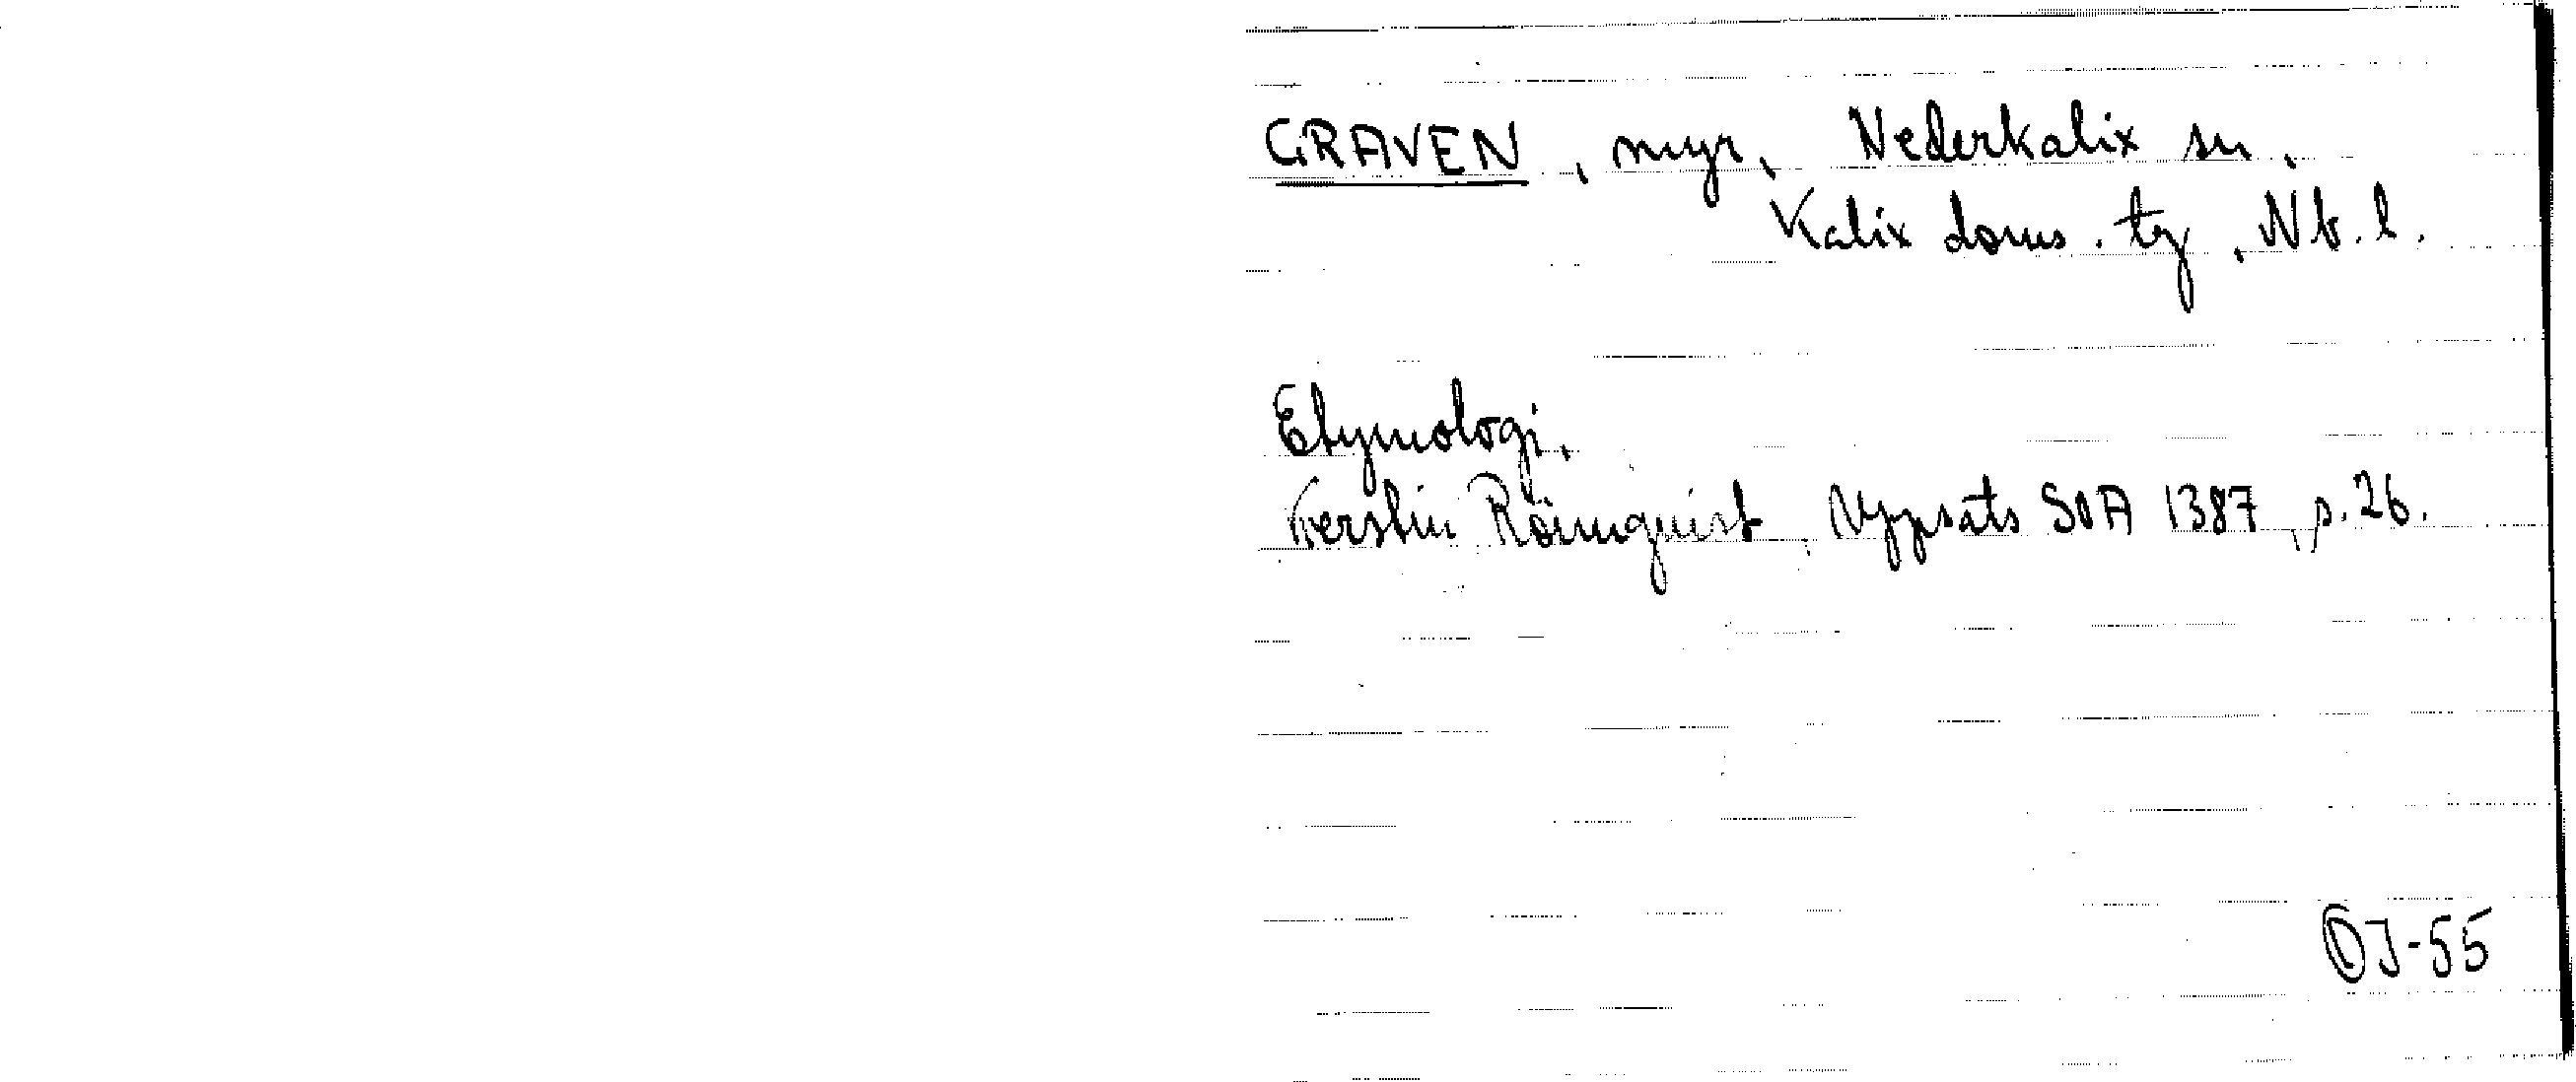 GRAVEN, myr, Nederkalix sn.
Kalix doms. tg, Nb.l.
Etymologi.
Kerstin Rönnquist, Uppsats SOA 1387, s.26.
OJ-55